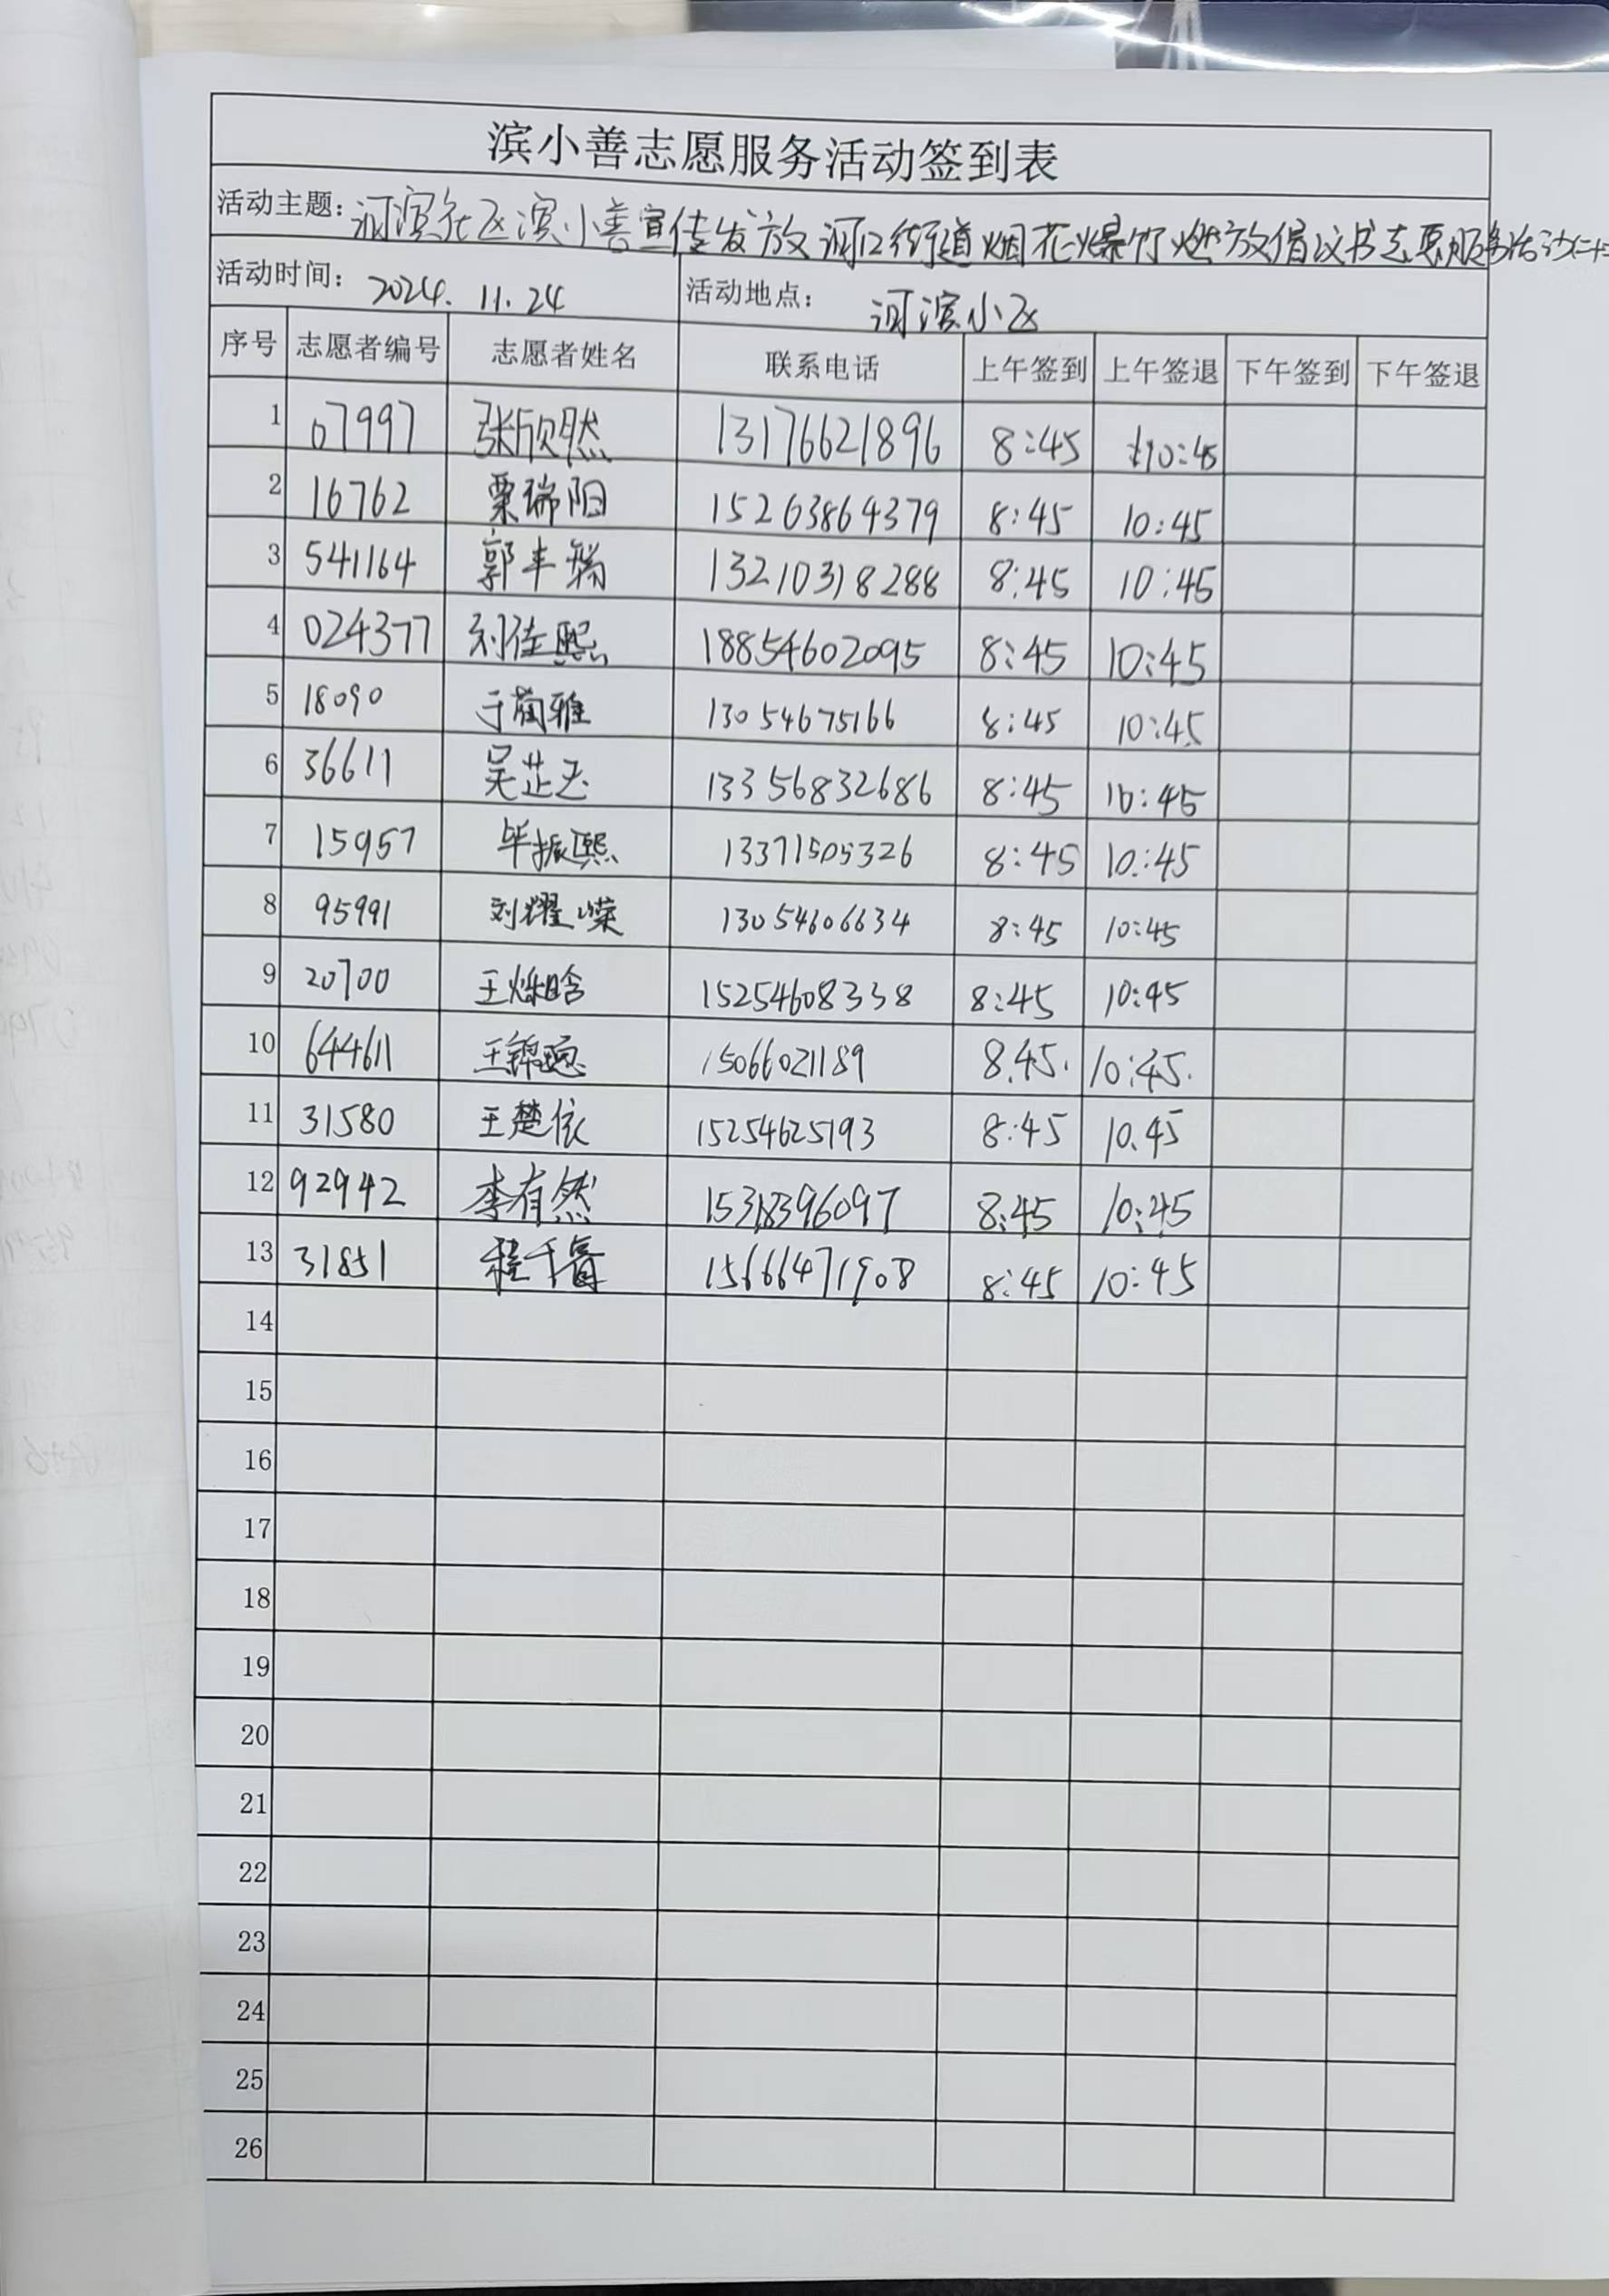 滨小善志愿服务活动签到表
活动主题：河滨社区滨小善宣传发放河口街道烟花爆竹燃放倡议书志愿服务活动
活动时间：2024.11.24 活动地点：河滨小区
序号 志愿者编号 志愿者姓名 联系电话 上午签到 上午签退 下午签到 下午签退
1 07997 张欣然 13176621896 8:45 10:45
2 16762 栗瑞阳 15263864379 8:45 10:45
3 541164 郭丰瑞 13210318288 8:45 10:45
4 024377 刘佳熙 18854602095 8:45 10:45
5 18090 于蔺雅 13054675166 8:45 10:45
6 36611 吴芷玉 13356832686 8:45 10:45
7 15957 毕振熙 13371505326 8:45 10:45
8 95991 刘耀嵘 13054606634 8:45 10:45
9 20700 王烁晗 15254608338 8:45 10:45
10 644611 王锦 15066021189 8.45. 10:45.
11 31580 王楚依 15254625193 8:45 10.45
12 92942 李有然 15318396097 8:45 10:45
13 31851 程千 15666471908 8:45 10:45
14
15
16
17
18
19
20
21
22
23
24
25
26